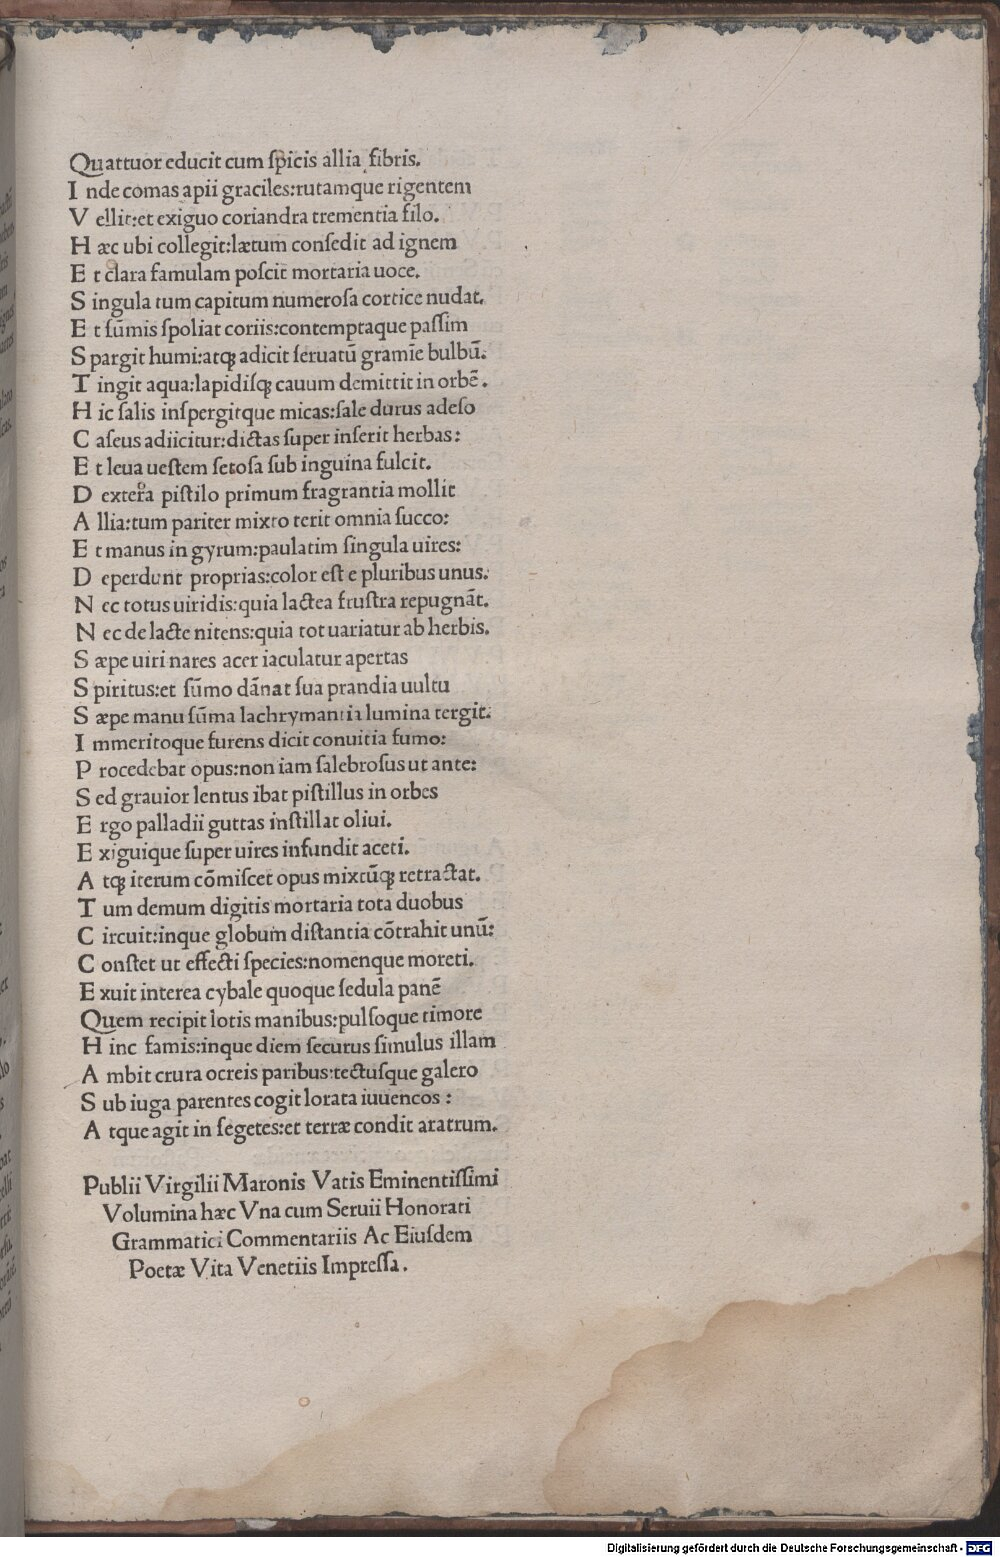 Quattuor educit cum ſpicis allia fibris.
I nde comas apii graciles:rutamque rigentem
V ellit:et exiguo coriandra trementia filo.
H æc ubi collegit:lætum conſedit ad ignem
E t clara famulam poſcit mortaria uoce.
S ingula tum capitum numeroſa cortice nudat.
E t ſūmis ſpoliat coriis:contemptaque paſſim
S pargit humi:atqꝫ adicit ſeruatū gramīe bulbū.
T ingit aqua:lapidiſqꝫ cauum demittit in orbē.
H ic ſalis inſpergitque micas:ſale durus adeſo
C aſeus adiicitur:dictas ſuper inſerit herbas:
E t leua ueſtem ſetoſa ſub inguina fulcit.
D extera piſtilo primum fragrantia mollit
A llia:tum pariter mixto terit omnia ſucco:
E t manus in gyrum:paulatim ſingula uires:
D eperdunt proprias:color eſt e pluribus unus.
N ec totus uiridis:quia lactea fruſtra repugnāt.
N ec de lacte nitens:quia tot uariatur ab herbis.
S æpe uiri nares acer iaculatur apertas
S piritus:et ſūmo dānat ſua prandia uultu
S æpe manu ſūma lachrymantia lumina tergit.
I mmeritoque furens dicit conuitia fumo:
P rocedebat opus:non iam ſalebroſus ut ante:
S ed grauior lentus ibat piſtillus in orbes
E rgo palladii guttas inſtillat oliui.
E xiguique ſuper uires infundit aceti.
A tqꝫ iterum cōmiſcet opus mixtūqꝫ retractat.
T um demum digitis mortaria tota duobus
C ircuit:inque globum diſtantia cōtrahit unū:
C onſtet ut effecti ſpecies:nomenque moreti.
E xuit interea cybale quoque ſedula panē
Quem recipit lotis manibus:pulſoque timore
H inc famis:inque diem ſecurus ſimulus illam
A mbit crura ocreis paribus:tectuſque galero
S ub iuga parentes cogit lorata iuuencos :
A tque agit in ſegetes:et terræ condit aratrum.
Publii Virgilii Maronis Vatis Eminentiſſimi
Volumina hæc Vna cum Seruii Honorati
Grammatici Commentariis Ac Eiuſdem
Poetæ Vita Venetiis Impreſſa.
Digitalisierung gefördert durch die Deutsche Forschungsgemeinschaft - DFG